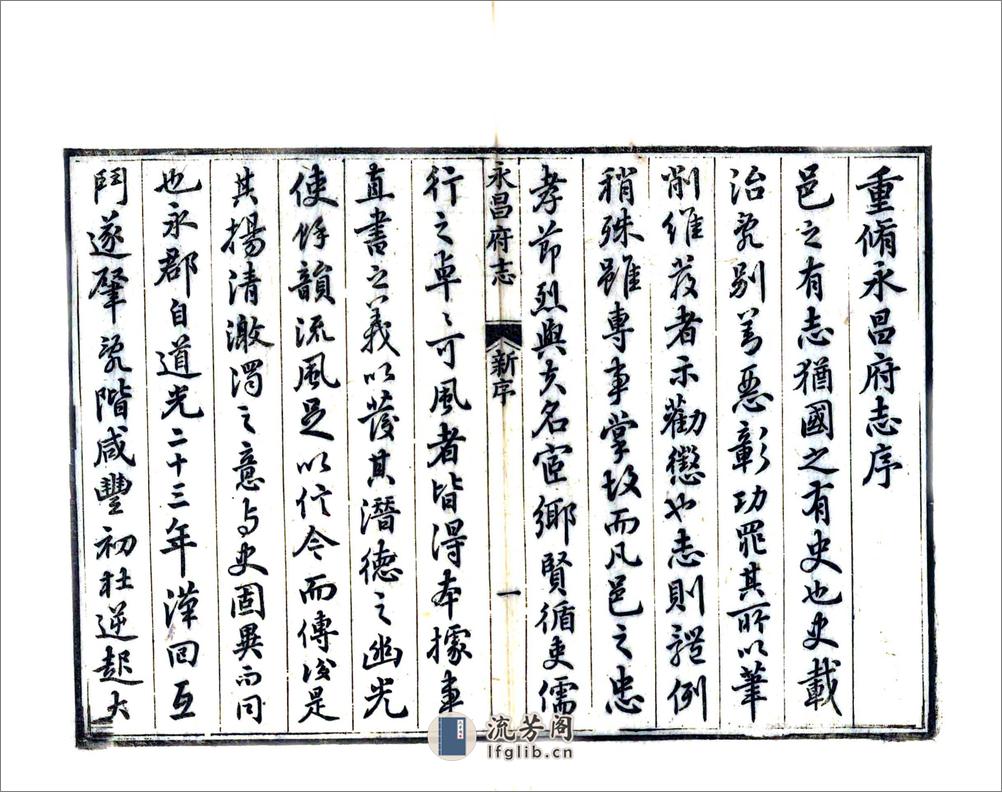 重脩永昌府志序
邑之有志猶國之有史也史載
治亂別善惡彰功罪其所以筆
削維嚴者示勸懲也志則體例
稍殊雖專事掌故而凡邑之忠
孝節烈與夫名宦鄉賢循吏儒
永昌府志
新序
一
行之卓〻可風者皆得本據事
直書之義以發其潛德之幽光
使餘韻流風足以信今而傳後是
其揚清激濁之意与史固異而同
也永郡自道光二十三年漢回互
鬥遂肇亂階咸豐初杜逆起大
流芳阁
lfglib.cn